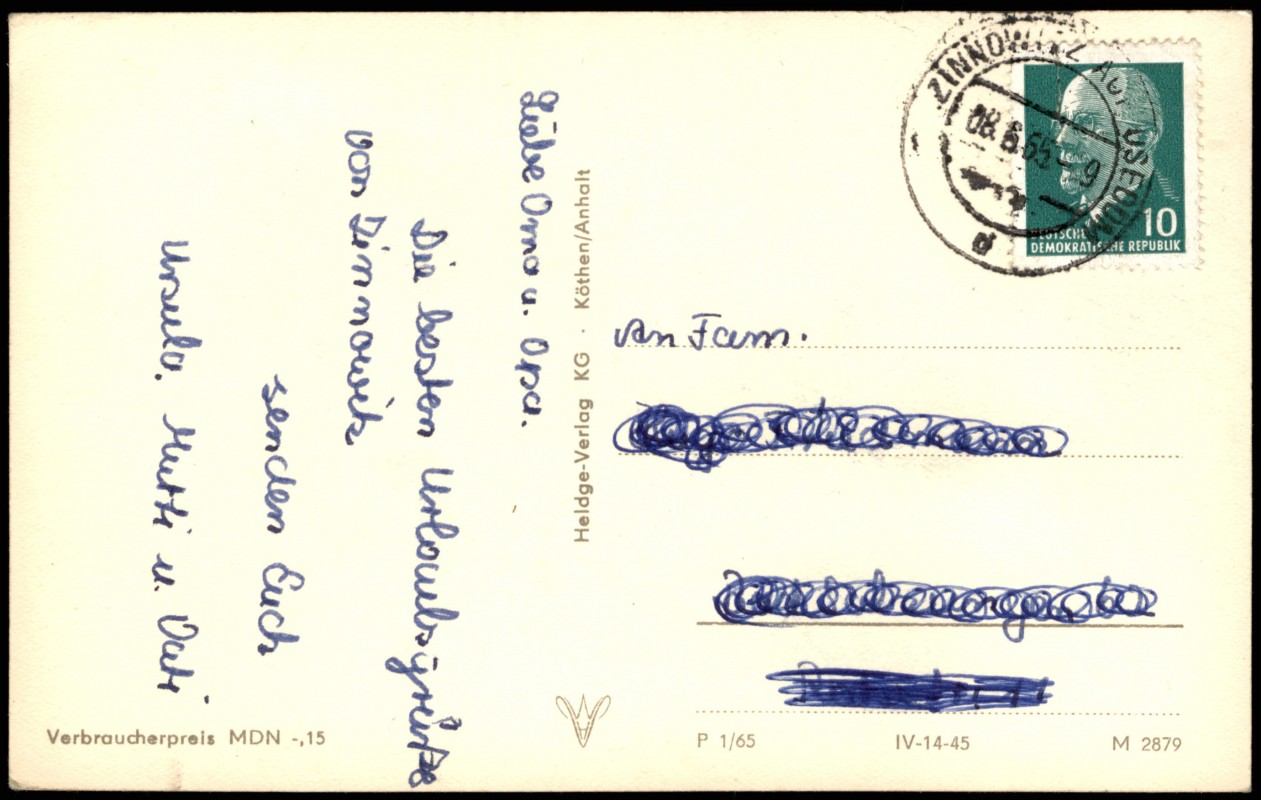 Liebe Oma u. Opa.
Die besten Urlaubsgrüße
von Zinnowitz
senden Euch
Ursula, Mutti u. Vati
Heldge-Verlag KG · Köthen/Anhalt
Verbraucherpreis MDN -,15
ZINNOWITZ AUF USEDOM
08.6.65-9
d
10
DEUTSCHE
DEMOKRATISCHE REPUBLIK
An Fam.
P 1/65 IV-14-45 M 2879